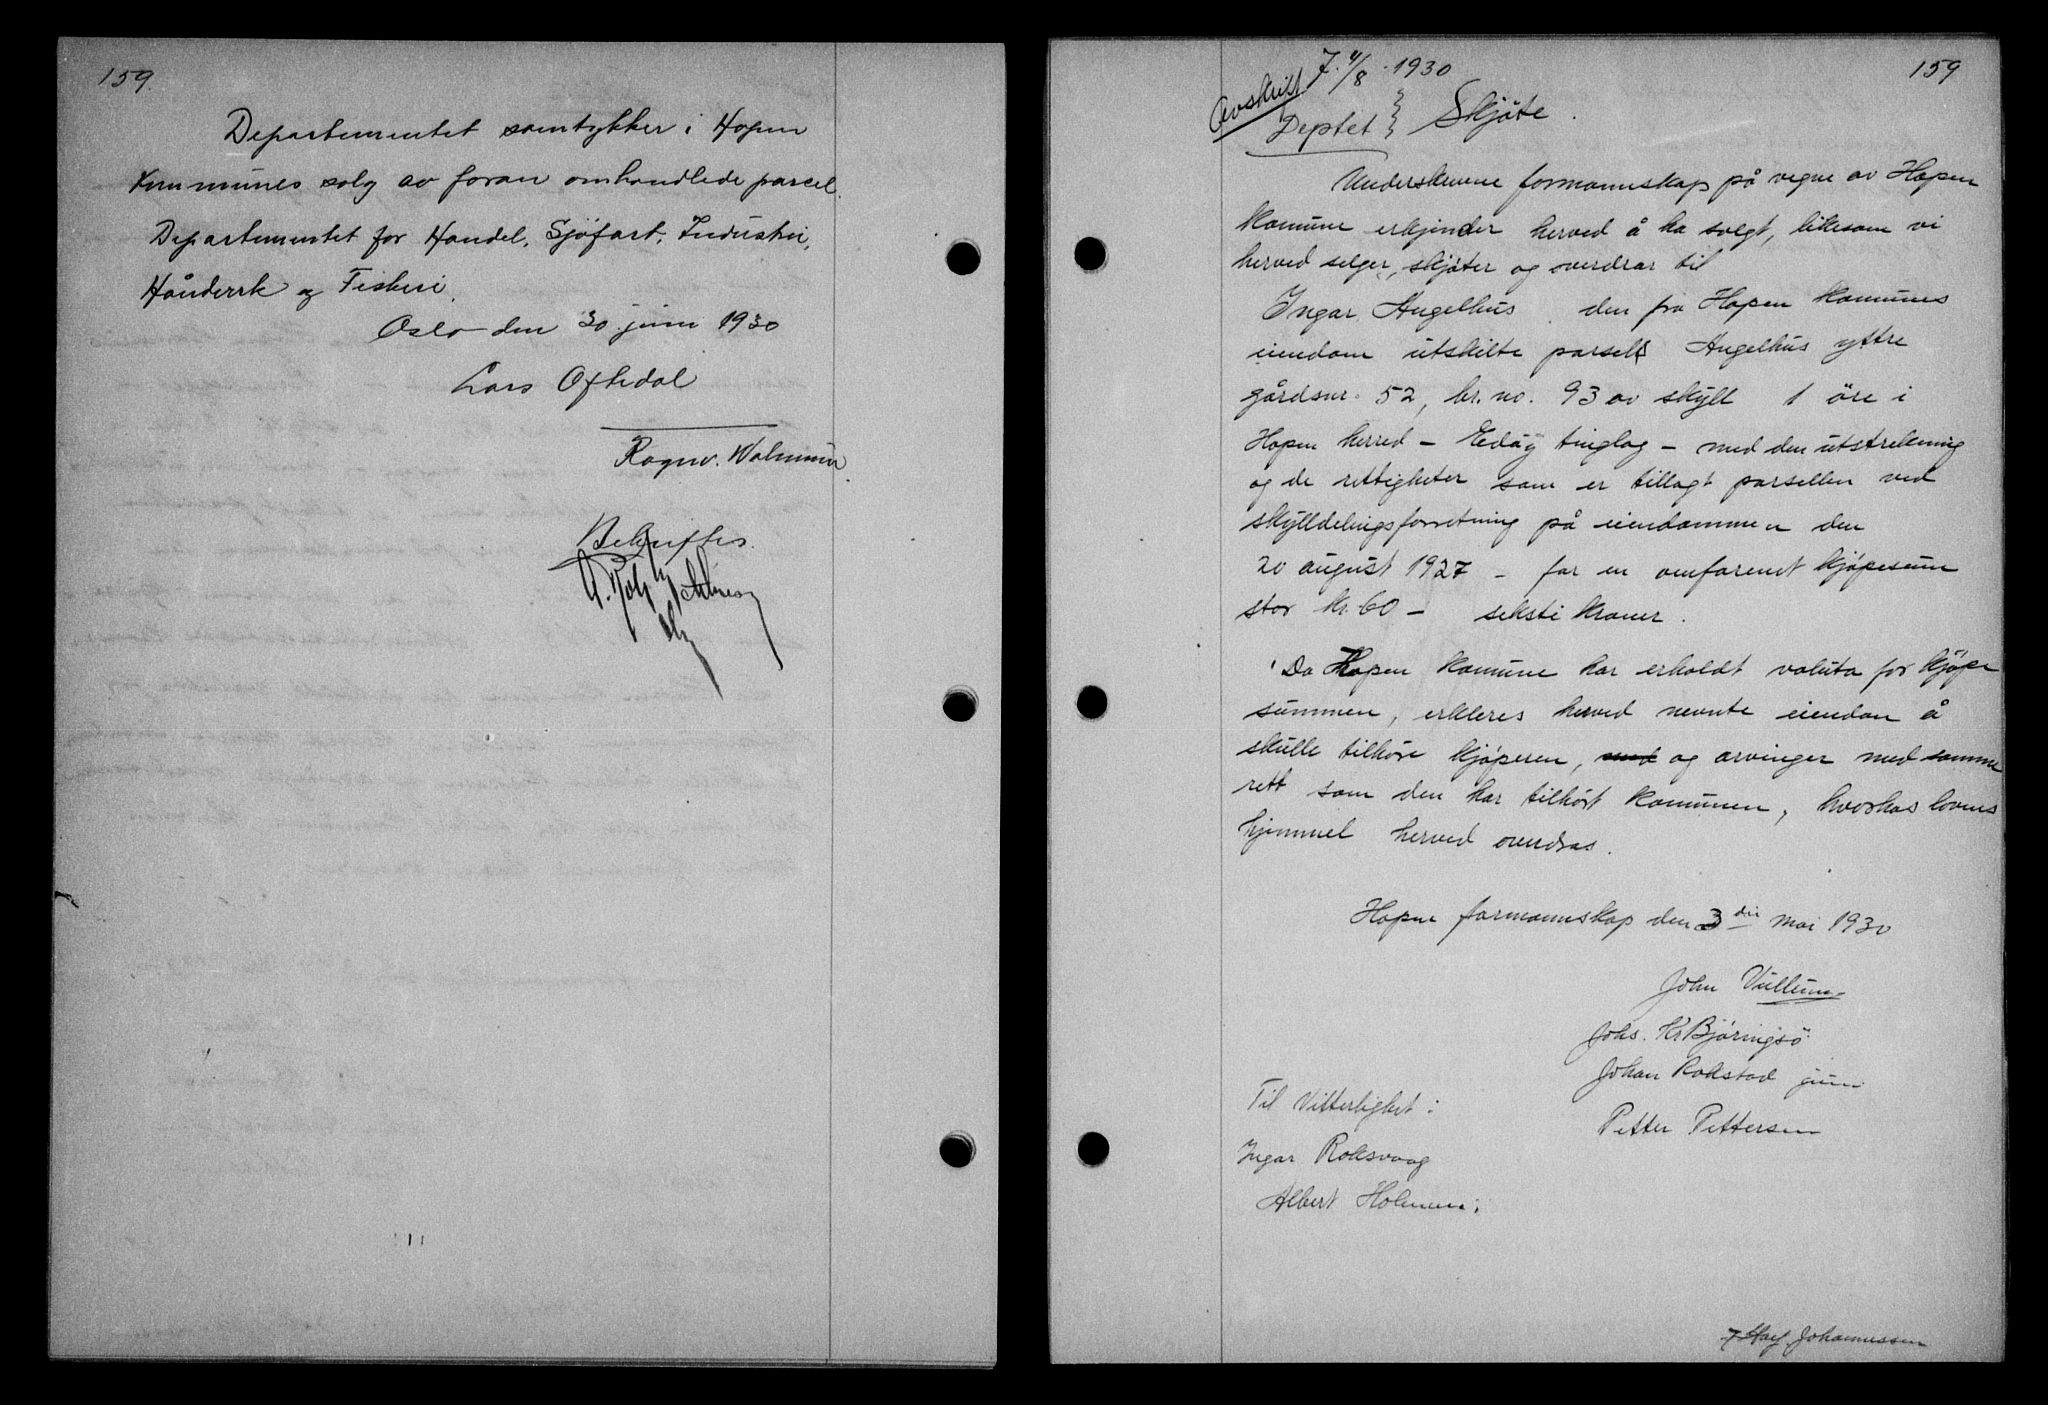 159.
Departementet samtykker i Hopen
Kommunes salg av foran omhandlede parcel.
Departementet for Handel, Sjöfart, Industri,
Håndverk og Fiskeri.
Oslo den 30 juni 1930
Lars Oftedal
Ragnv. Walmann
Bekreftes.
159
7. 4/8 1930
Avskrift
Deptet } Skjöte.
Underskrevne formannskap på vegne av Hopen
komune erkjender herved å ha solgt, likesom vi
herved selger, skjöter og overdrar til
Ingar Angelhus den fra Hopen komunes
eiendom utskilte parsell Angelhus yttre
gårdsnr. 52, br. no. 93 av skyld 1 öre i
Hopen herred – Edöy tinglag – med den utstrekning
og de rettigheter som er tillagt parsellen ved
skylldelingsforretning på eiendommen den
20 august 1927 – for en omforent kjöpesum
stor kr. 60 – seksti kroner.
Da Hopen komune har erholdt valuta for kjöpe
summen, erkleres herved nevnte eiendom å
skulle tilhöre kjöperen, med og arvinger med samme
rett som den har tilhört komunen, hvorhos lovens
hjemmel herved overdras.
Hopen formannskap den 3die mai 1930
John Vullum
Johs. Kr Björingsö
Johan Rokstad jun.
Petter Pettersen
Til Vitterlighet:
Ingar Roksvaag
Albert Holmen
Johannessen